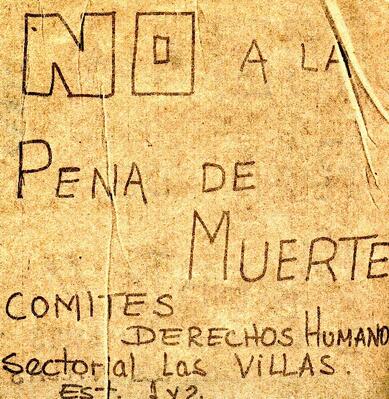 NO A LA
PENA DE
MUERTE
COMITES
DERECHOS HUMANO
Sectorial Las VILLAS.
EST. 1 y 2.